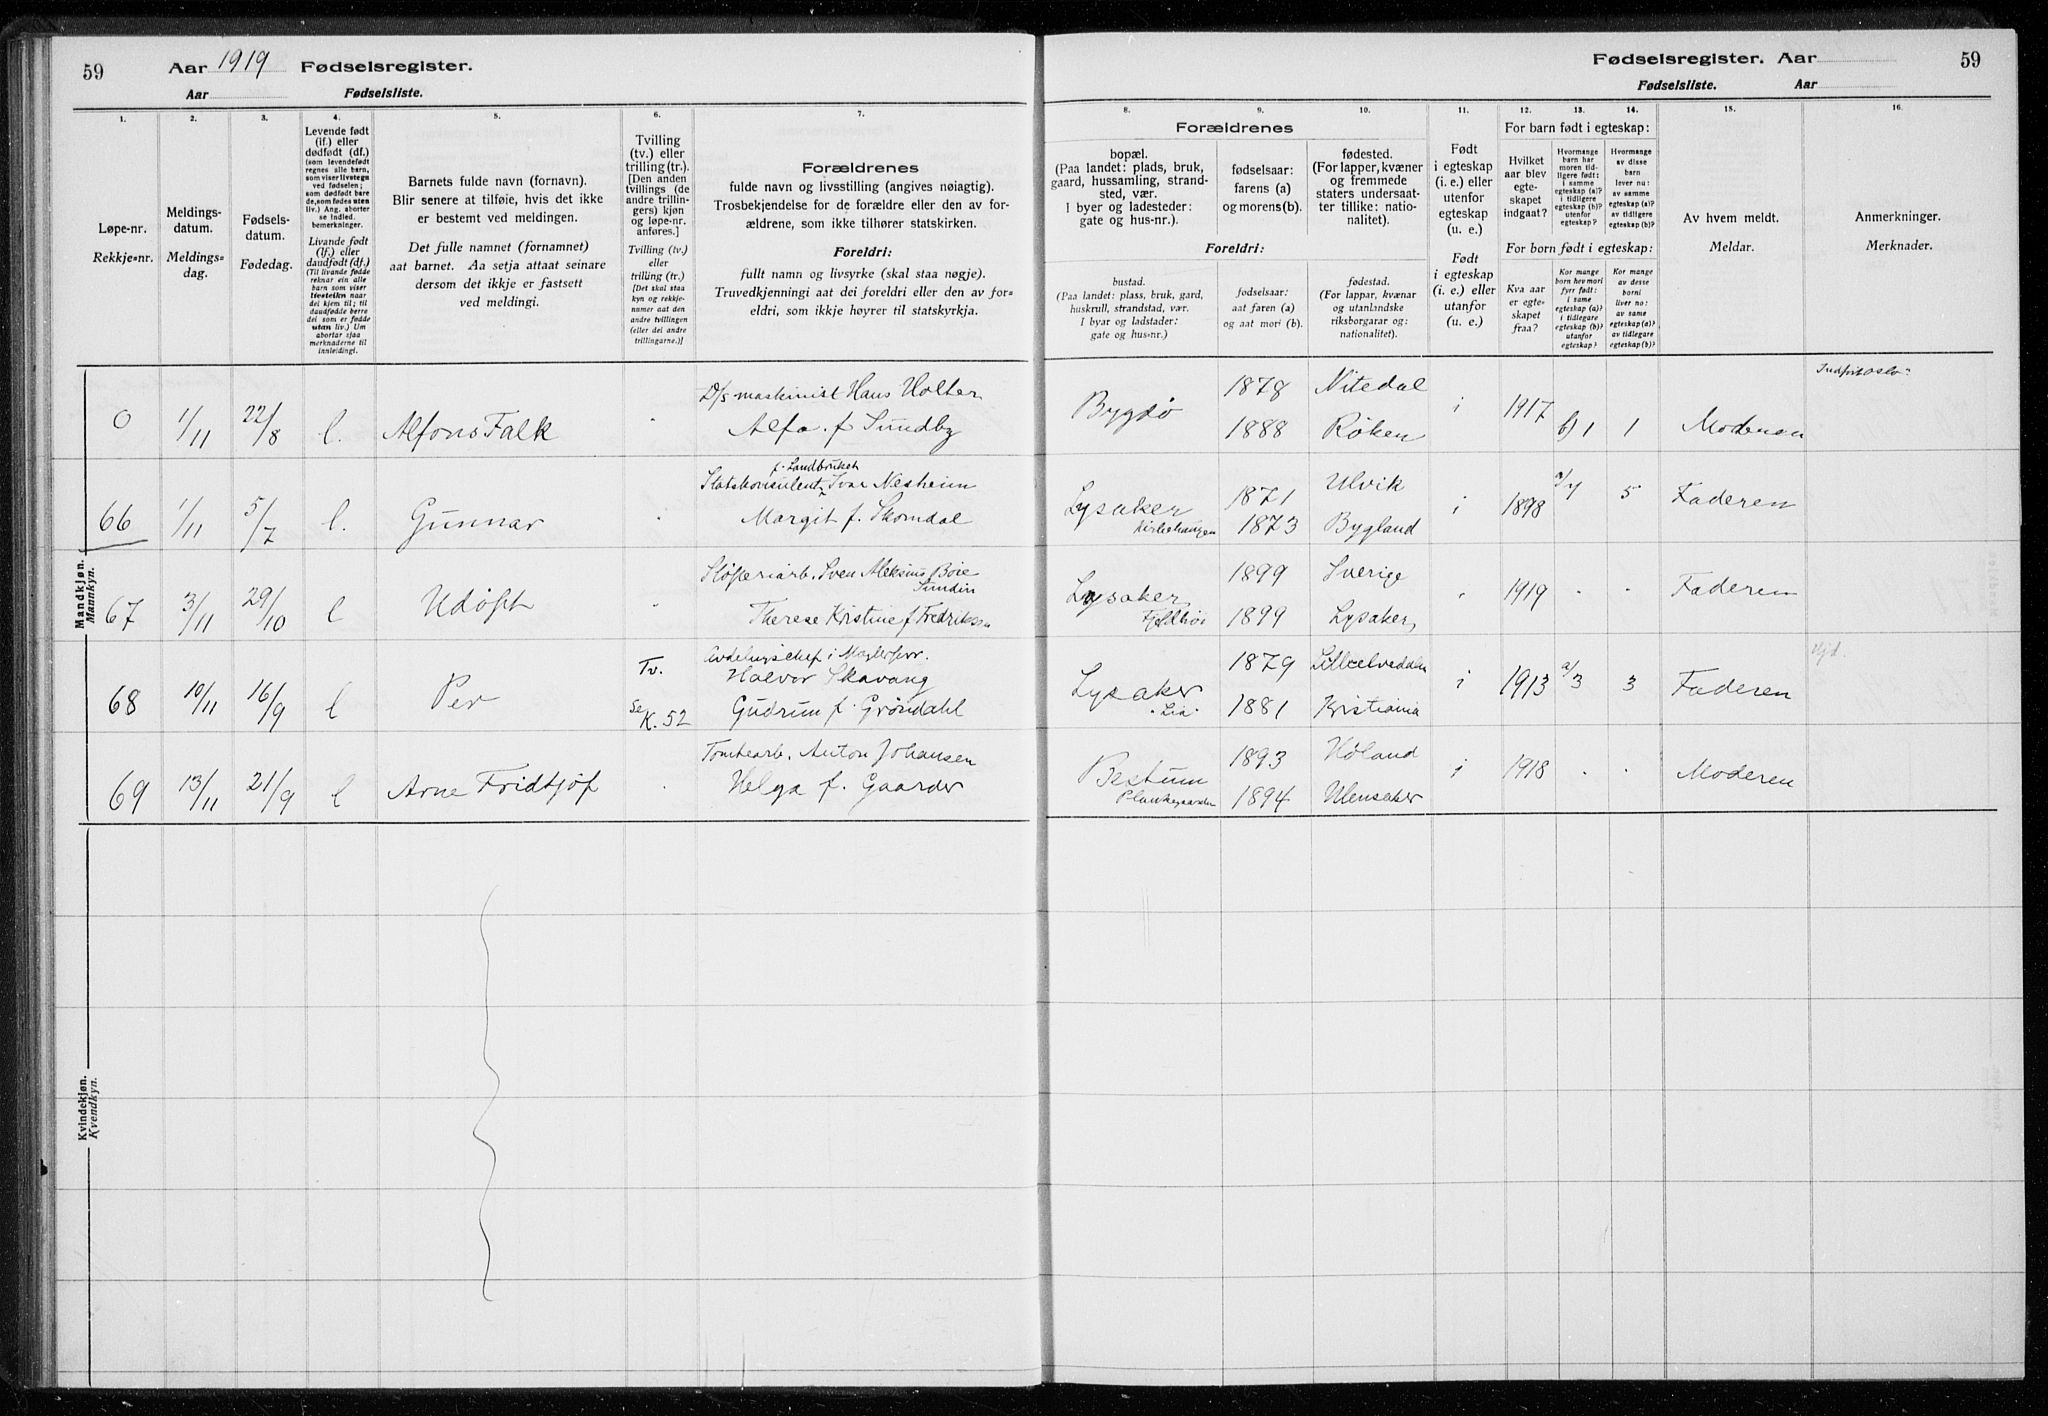 59 Aar 1919 Fødselsregister.
Aar Fødselsliste.
1. 2. 3. 4. 5. 6. 7.
Løpe-nr.
Rekkje-nr.
Meldings-
datum.
Meldings-
dag.
Fødsels-
datum.
Fødedag.
Levende født
(lf.) eller
dødfødt (df.)
(som levendefødt
regnes alle barn,
som viser livstegn
ved fødselen;
som dødfødt bare
de, som fødes uten
liv.) Ang. aborter
se indled.
bemerkninger.
Livande født
(lf.) eller
daudfødt (df.)
(Til livande fødde
reknar ein alle
barn som viser
livsteikn naar
dei kjem til; til
daudfødde berre
dei som er fødde
utan liv.) Um
abortar sjaa
merknaderne til
innleidingi.
Barnets fulde navn (fornavn).
Blir senere at tilføie, hvis det ikke
er bestemt ved meldingen.
Det fulle namnet (fornamnet)
aat barnet. Aa setja attaat seinare
dersom det ikkje er fastsett
ved meldingi.
Tvilling
(tv.) eller
trilling (tr.).
[Den anden
tvillings (de
andre trillin-
gers) kjøn
og løpe-nr.
anføres.]
Tvilling (tv.)
eller
trilling (tr.)
[Det skal staa
kyn og rekkje-
numer aat den
andre tvillingen
(eller dei andre
trillingarne.)]
Forældrenes
fulde navn og livsstilling (angives nøiagtig).
Trosbekjendelse for de forældre eller den av for-
ældrene, som ikke tilhører statskirken.
Foreldri:
fullt namn og livsyrke (skal staa nøgje).
Truvedkjenningi aat dei foreldri eller den av for-
eldri, som ikkje høyrer til statskyrkja.
Mandkjøn.
Mannkyn.
0 1/11 22/8 l. Alfons Falk
D/s maskinist Hans Holter
Alfa f. Sundby
66 1/11 5/7 l. Gunnar
f. Landbruket
Statskonsulent Ivar Nesheim
Margit f. Skomdal
67 3/11 29/10 l Udøpt
Sven Aleksius Boie
Sundin
Therese Kristine f Fredriks
68 10/11 16/9 l Per
Tv.
Se K. 52
Halvor Skavang
Gudrun f. Grøndahl
69 13/11 21/9 l Arne Fridtjof
Tomtearb. Anton Johansen
Helga f. Gaarder
Kvindekjøn.
Kvendkyn.
Fødselsregister. Aar 59
Fødselsliste. Aar
8. 9. 10. 11. 12. 13. 14. 15. 16.
Forældrenes
bopæl.
(Paa landet: plads, bruk,
gaard, hussamling, strand-
sted, vær.
I byer og ladesteder:
gate og hus-nr.).
fødselsaar:
farens (a)
og morens (b).
fødested.
(For lapper, kvæner
og fremmede
staters undersaat-
ter tillike: natio-
nalitet).
Foreldri:
bustad.
(Paa landet: plass, bruk, gard,
huskrull, strandstad, vær.
I byar og ladstader:
gate og hus-nr.)
fødselsaar:
aat faren (a)
og aat mori (b).
fødestad.
(For lappar, kvænar
og utanlandske
riksborgarar og:
nationalitet).
Født
i egteskap
(i. e.) eller
utenfor
egteskap
(u. e.)
Født
i egteskap
(i. e.) eller
utanfor
(u. e.)
For barn født i egteskap:
Hvilket
aar blev
egte-
skapet
indgaat?
Hvormange
barn har
moren tid-
ligere født:
i samme
egteskap (a)?
i tidligere
egteskap (b)?
utenfor
egteskap?
Hvormange
av disse
barn
lever nu:
av samme
egteskap (a)?
av tidligere
egteskap (b)?
For born født i egteskap:
Kva aar
er egte-
skapet
fraa?
Kor mange
born hev mori
fyrr født:
i same
egteskap (a)?
i tidlegare
egteskap (b)?
utanfor
egteskap?
Kor mange
av desse
borni
liver no:
av same
egteskap (a)?
av tidlegare
egteskap (b)?
Av hvem meldt.
Meldar.
Anmerkninger.
Merknader.
Bygdø 1878 Nitedal
1888 Røken
i 1917 b) 1 1 Moderen
Lysaker 1871 Ulvik
1873 Bygland
i 1898 a/7 5 Faderen
Lysaker 1899 Sverige
1899 Lysaker
1919 Faderen
Lysaker 1879
"Lia" 1881 Kristiania
i 1913 a/3 3 Faderen
Bestum 1893 Høland
Plankegaarden 1894 Ulensaker
i 1918 Moderen